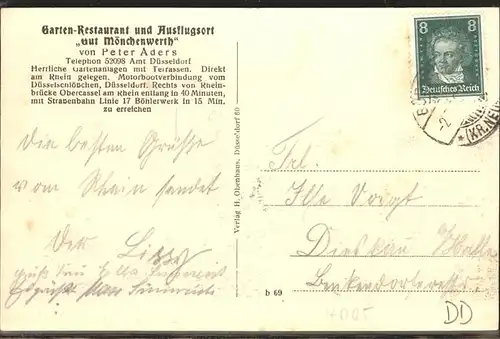 Garten-Restaurant und Ausflugsort
„Gut Mönchenwerth"
von Peter Aders
Telephon 52098 Amt Düsseldorf
Herrliche Gartenanlagen mit Terrassen. Direkt
am Rhein gelegen. Motorbootverbindung vom
Düsselschlößchen, Düsseldorf. Rechts von Rhein-
brücke Obercassel am Rhein entlang in 40 Minuten,
mit Straßenbahn Linie 17 Böhlerwerk in 15 Min.
zu erreichen
Die besten Grüße
vom Rhein sendet
Verlag H. Obenhaus, Düsseldorf 60
b 69
8 8
Deutsches Reich
(KR.NEU
Frl.
Ilse Voigt
Dieskau Halle
Benkendorferstr.
DD